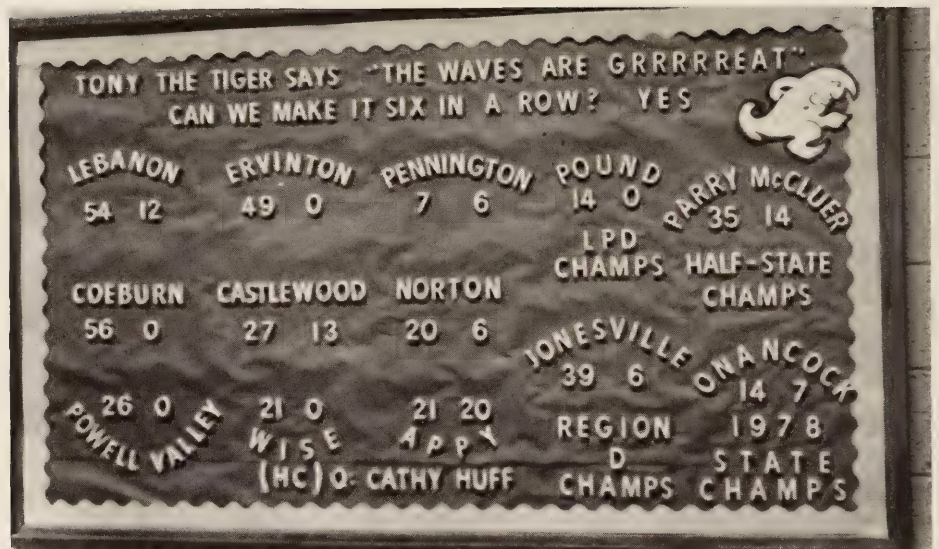 TONY THE TIGER SAYS "THE WAVES ARE GRRRRREAT".
CAN WE MAKE IT SIX IN A ROW? YES
LEBANON
54 12
ERVINTON
49 0
PENNINGTON
7 6
POUND
14 0
LPD
CHAMPS
PARRY McCLUER
35 14
HALF-STATE
CHAMPS
COEBURN
56 0
CASTLEWOOD
27 13
NORTON
20 6
JONESVILLE
39 6
REGION
D
CHAMPS
ONANCOCK
14 7
1978
STATE
CHAMPS
26 0
POWELL VALLEY
21 0
WISE
21 20
APPY
(HC) Q: CATHY HUFF